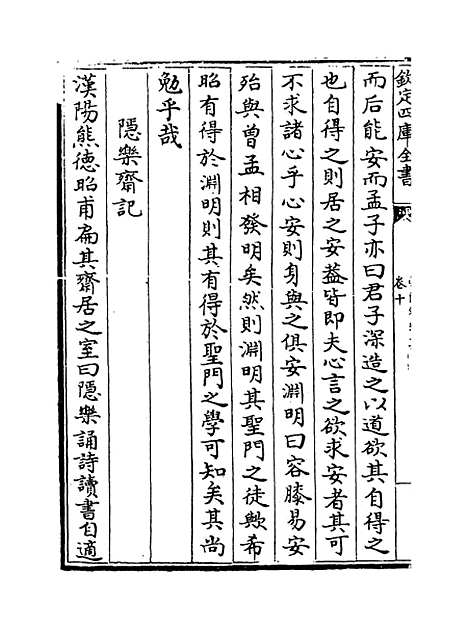 欽定四庫全書
卷十
而后能安而孟子亦曰君子深造之以道欲其自得之
也自得之則居之安葢皆即夫心言之欲求安者其可
不求諸心乎心安則身與之俱安淵明曰容膝易安
殆與曽孟相發明矣然則淵明其聖門之徒歟希
昭有得於淵明則其有得於聖門之學可知矣其尚
勉乎哉
隱樂齋記
漢陽熊徳昭甫扁其齋居之室曰隱樂誦詩讀書自適